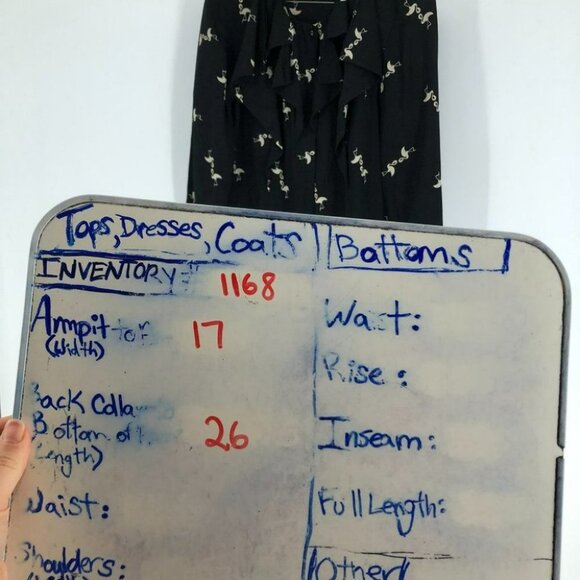 Tops, Dresses, Coats
INVENTORY # 1168
Armpit to 17
(Width)
Back Colla
Bottom of 26
Length)
Waist:
Shoulders:
Bottoms
Waist:
Rise:
Inseam:
Full Length:
Other